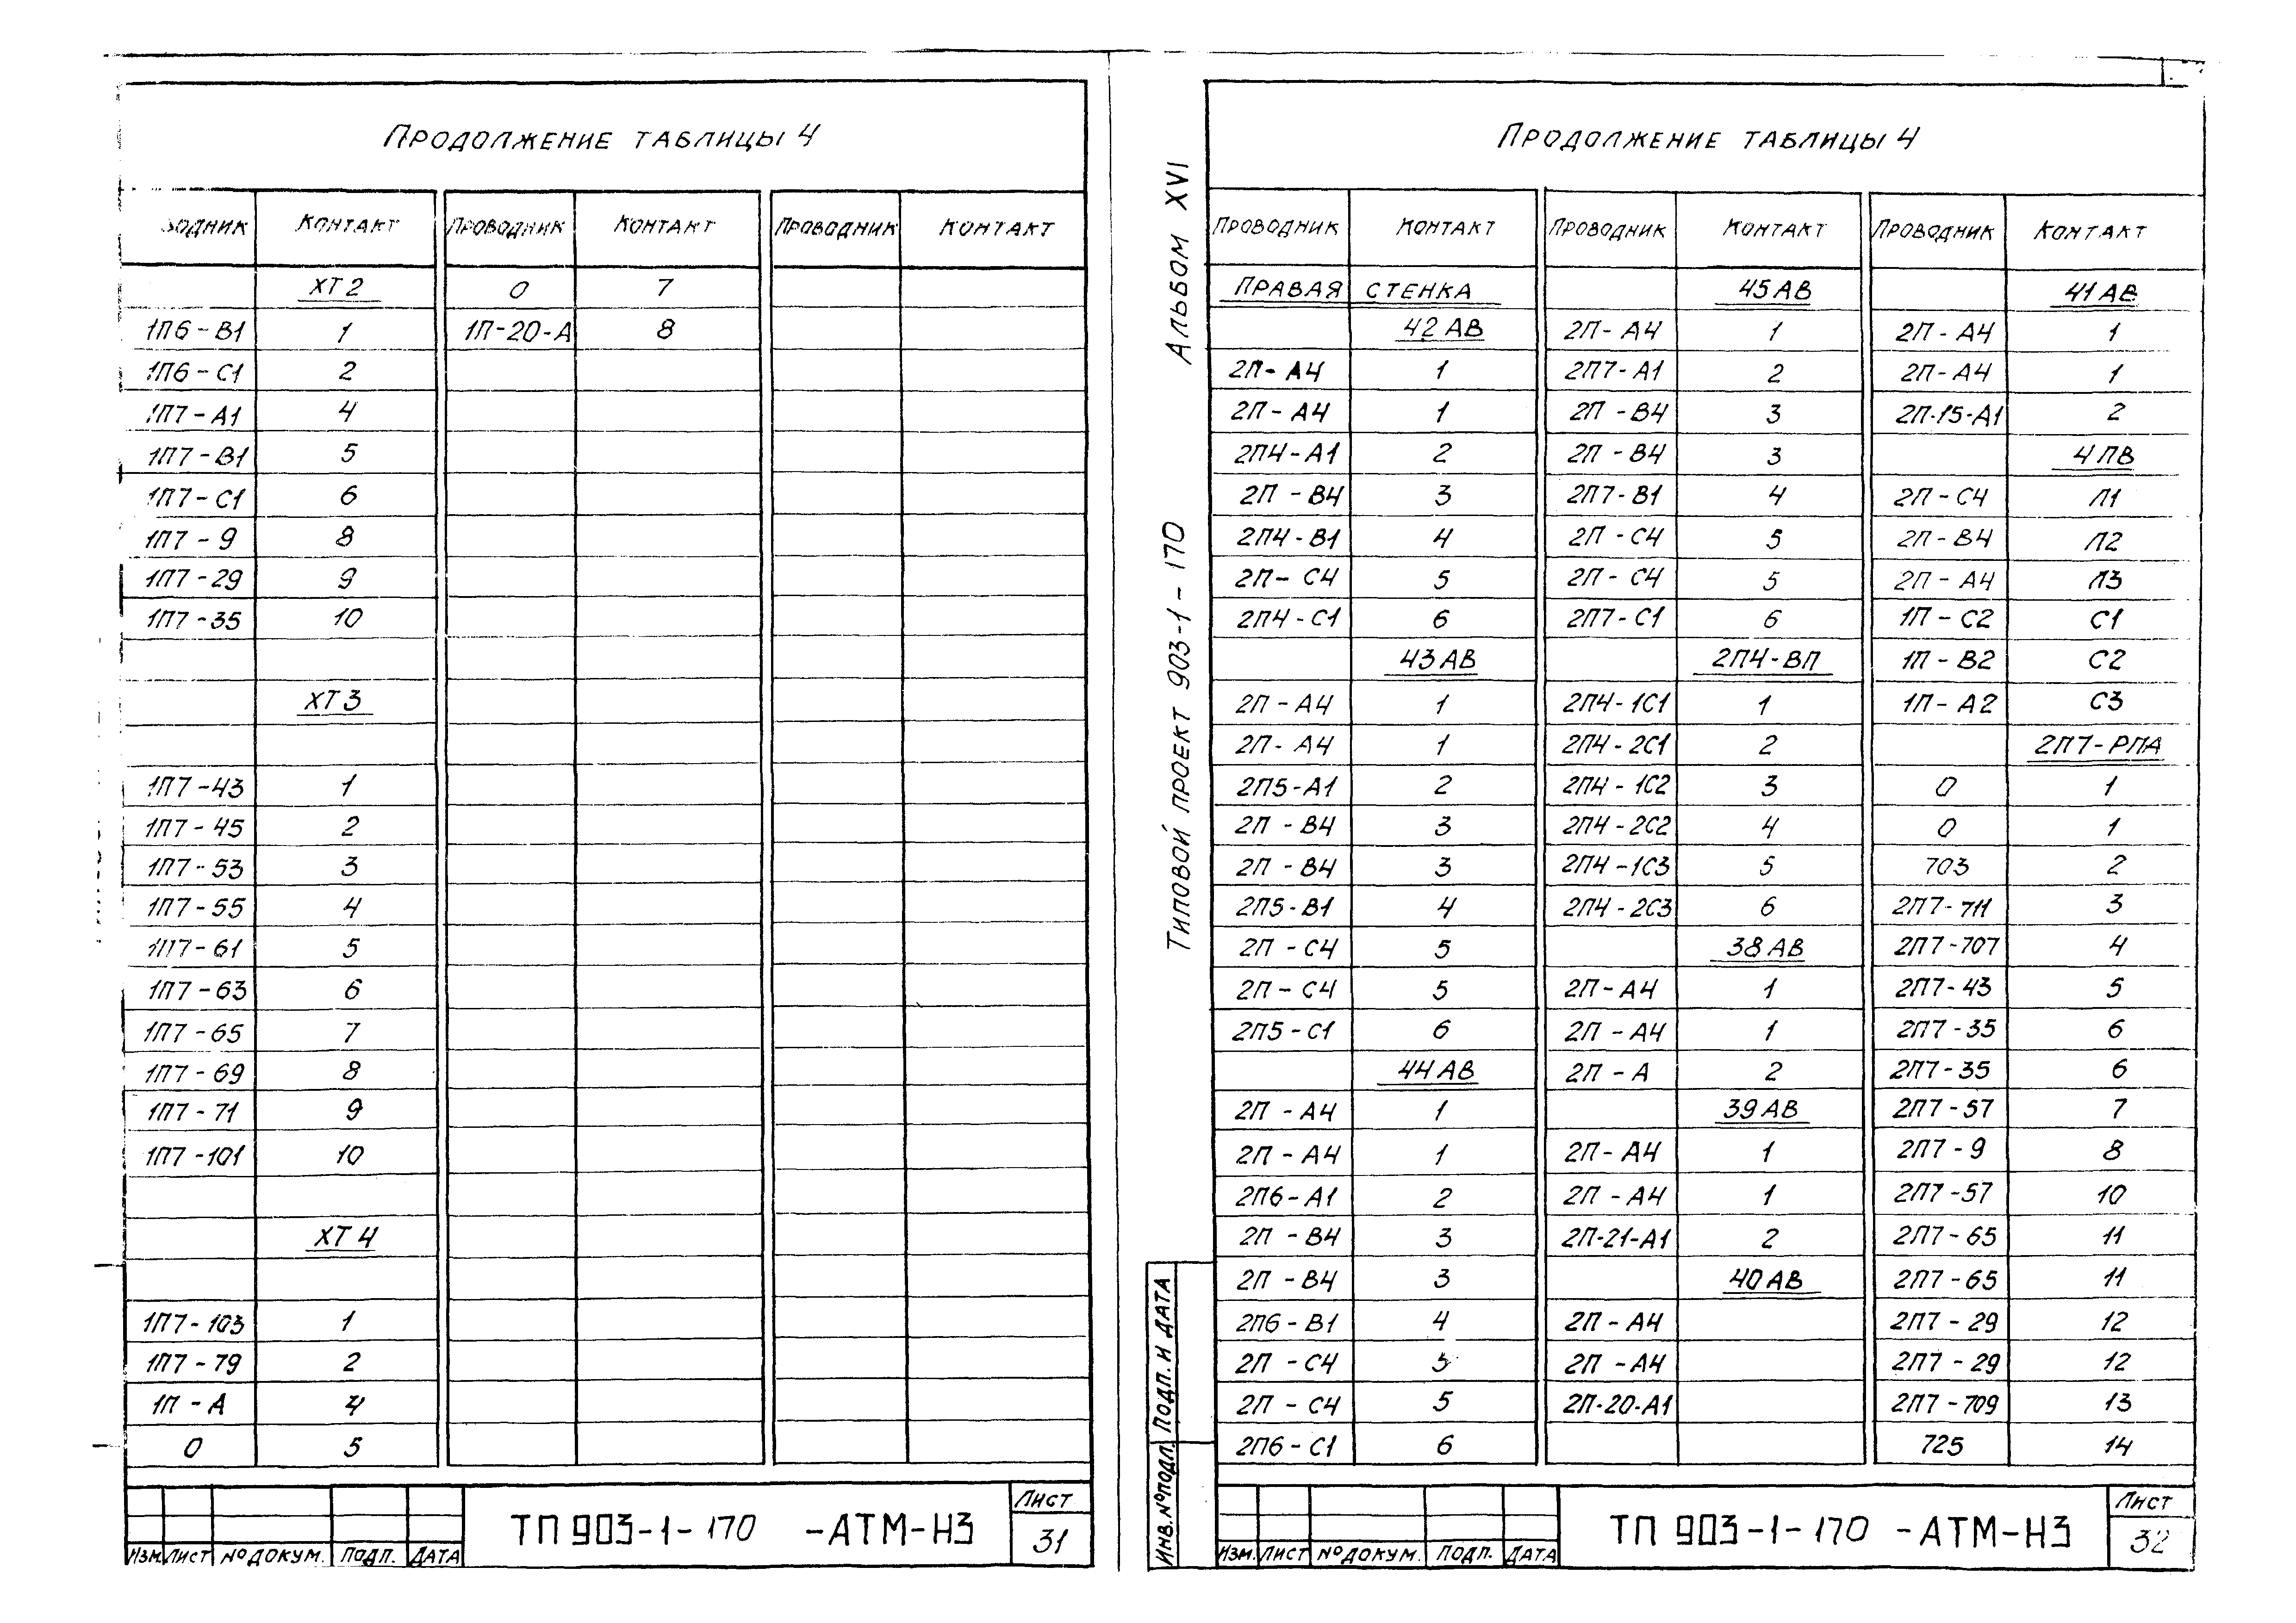 Продолжение таблицы 4
водник Контакт Проводник Контакт Проводник Контакт
ХТ2 0 7
1П6-В1 1 1П-20-А 8
1П6-С1 2
1П7-А1 4
1П7-В1 5
1П7-С1 6
1П7-9 8
1П7-29 9
1П7-35 10
ХТ3
1П7-43 1
1П7-45 2
1П7-53 3
1П7-55 4
1П7-61 5
1П7-63 6
1П7-65 7
1П7-69 8
1П7-71 9
1П7-101 10
ХТ4
1П7-103 1
1П7-79 2
1П-А 4
0 5
Изм. Лист № докум. Подп. Дата
ТП 903-1-170 -АТМ-Н3
Лист
31
Альбом XVI
Типовой проект 903-1-170
Инв. № подл. Подп. и дата
Продолжение таблицы 4
Проводник Контакт Проводник Контакт Проводник Контакт
Правая стенка 45АВ 41АВ
42АВ 2П-А4 1 2П-А4 1
2П-А4 1 2П7-А1 2 2П-А4 1
2П-А4 1 2П-В4 3 2П-15-А1 2
2П4-А1 2 2П-В4 3 4ПВ
2П-В4 3 2П7-В1 4 2П-С4 Л1
2П4-В1 4 2П-С4 5 2П-В4 Л2
2П-С4 5 2П-С4 5 2П-А4 Л3
2П4-С1 6 2П7-С1 6 1П-С2 С1
43АВ 2П4-ВП 1П-В2 С2
2П-А4 1 2П4-1С1 1 1П-А2 С3
2П-А4 1 2П4-2С1 2 2П7-РПА
2П5-А1 2 2П4-1С2 3 0 1
2П-В4 3 2П4-2С2 4 0 1
2П-В4 3 2П4-1С3 5 703 2
2П5-В1 4 2П4-2С3 6 2П7-711 3
2П-С4 5 38АВ 2П7-707 4
2П-С4 5 2П-А4 1 2П7-43 5
2П5-С1 6 2П-А4 1 2П7-35 6
44АВ 2П-А 2 2П7-35 6
2П-А4 1 39АВ 2П7-57 7
2П-А4 1 2П-А4 1 2П7-9 8
2П6-А1 2 2П-А4 1 2П7-57 10
2П-В4 3 2П-21-А1 2 2П7-65 11
2П-В4 3 40АВ 2П7-65 11
2П6-В1 4 2П-А4 2П7-29 12
2П-С4 5 2П-А4 2П7-29 12
2П-С4 5 2П-20-А1 2П7-709 13
2П6-С1 6 725 14
Изм. Лист № докум. Подп. Дата
ТП 903-1-170 -АТМ-Н3
Лист
32